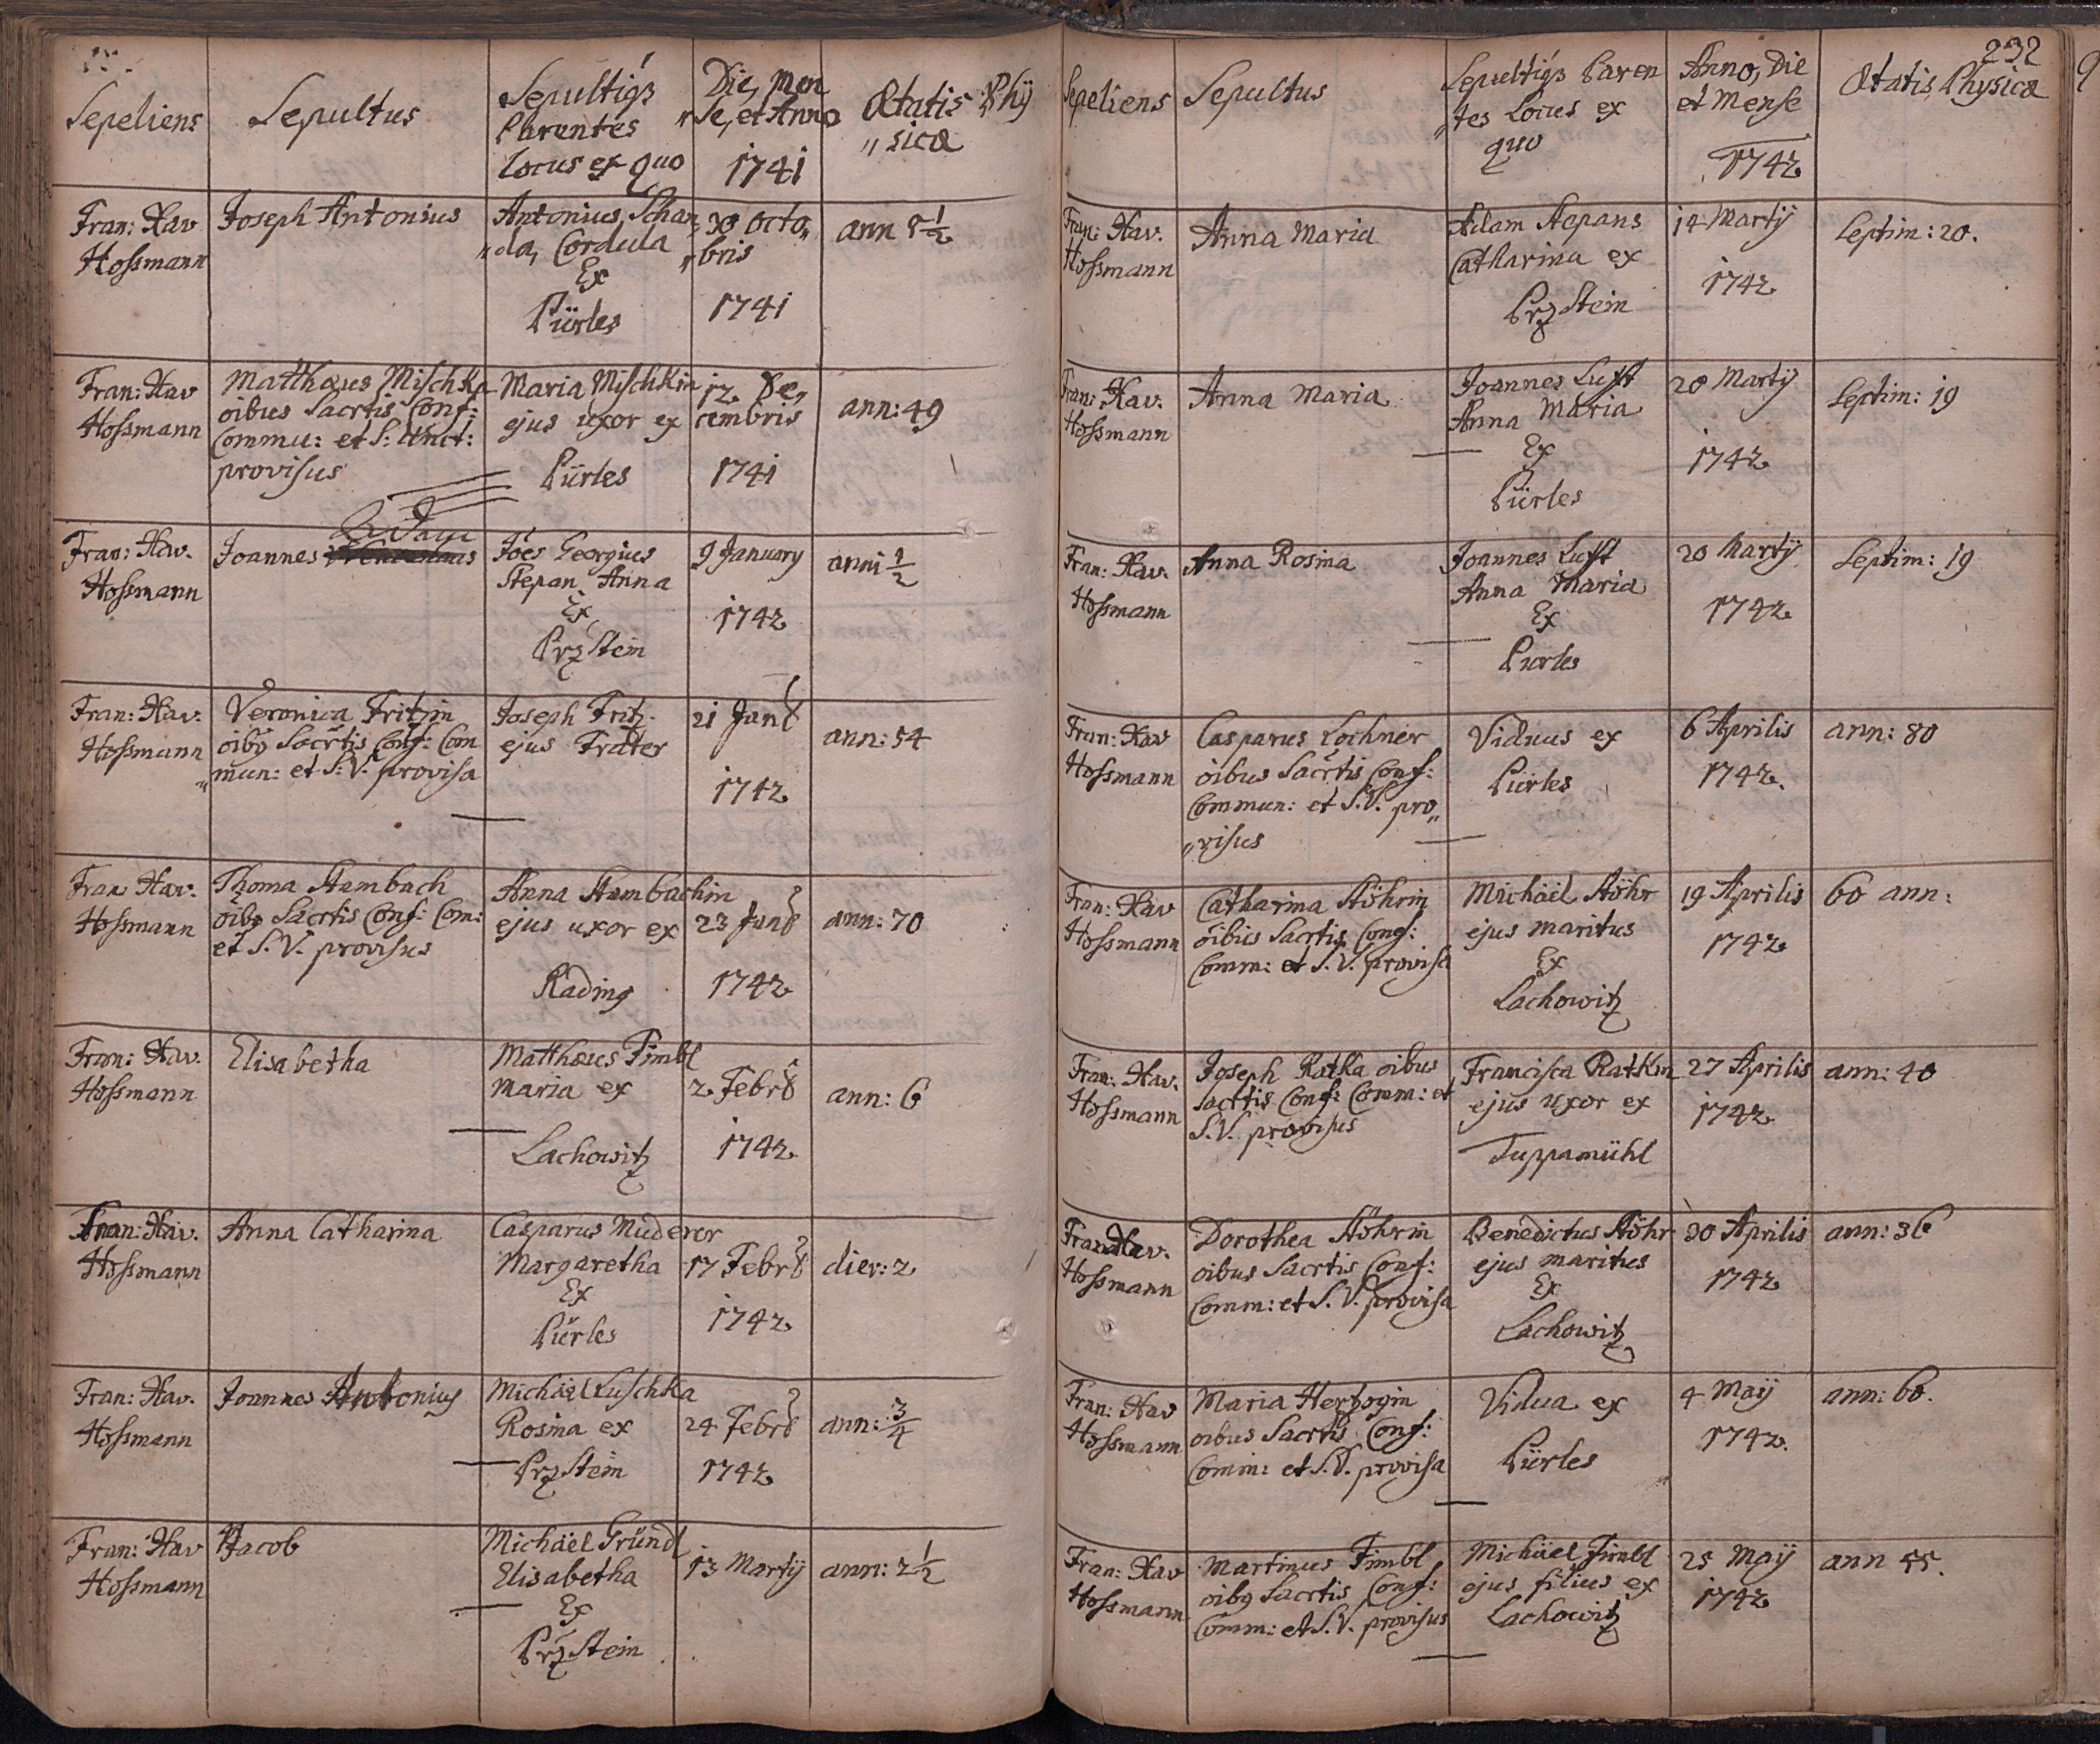 Sepeliens
Sepultus
Sepultiqȝ
Parentes
Locus ex quo
Die, Men
„se, et Anno
1741
Ætatis Phÿ
„sicæ
Fran: Xav
Hossmann
Joseph Antonius
Antonius Schan
„da, Cordula
Ex
Pürles
30 Octo„
„bris
1741
ann 8 1/2
Fran: Xav
Hossmann
Matthæus Mischka
oibus Sacrtis Conf:
Commu: et S: Unct:
provisus
Maria Mischkin
ejus uxor ex
Pürles
12 De„
cembris
1741
ann: 49
Fran: Xav.
Hossmann
Adam
Joannes
Jões Georgius
Stepan Anna
Ex
PrzStein
9 January
1742
anni 1/2
Fran: Xav.
Hossmann
Veronica Fritzin
oibȝ Sacrtis Conf: Com
„mun: et S: V. provisa
Joseph Fritz
ejus Frater
21 Jan
1742
ann: 54
Fran Xav.
Hossmann
Thoma Stambach
oibȝ Sacrtis Conf: Com:
et S. V. provisus
Anna Stambachin
ejus uxor ex
Rading
23 Jan
1742
ann: 70
Fran: Xav.
Hossmann
Elisabetha
Matthæus Fimbl
Maria ex
Lachowitz
2 Febr
1742
ann: 6
Fran: Xav.
Hossmann
Anna Catharina
Casparus Muderer
Margaretha
Ex
Pürles
17 Febr
1742
dier: 2
Fran: Xav.
Hossmann
Joannes Antonius
Michäel Luschka
Rosina ex
PrzStein
24 Febr
1742
ann: 3/4
Fran: Xav
Hossmann
Jacob
Michäel Gründl
Elisabetha
Ex
PrzStein
13 Martÿ
ann: 2 1/2
232
Sepeliens
Sepultus
Sepultiqȝ Paren
„tes Locus ex
quo
Anno, Die
et Mense
1742
Ætatis Physicæ
Fran: Xav.
Hossmann
Anna Maria
Adam Stepans
Catharina ex
PrzStein
14 Martÿ
1742
Septim: 20.
Fran: Xav.
Hossmann
Anna Maria
Joannes Lufft
Anna Maria
Ex
Pürles
20 Martÿ
1742
Septim: 19
Fran: Xav.
Hossmann
Anna Rosina
Joannes Lufft
Anna Maria
Ex
Pürles
20 Martÿ
1742
Septim: 19
Fran: Xav
Hossmann
Casparus Lochner
oibus Sacrtis Conf:
Commun: et S. V. pro„
„visus
Viduus ex
Pürles
6 Aprilis
1742.
ann: 80
Fran: Xav
Hossmann
Catharina Stöhrin
oibus Sacrtis Conf:
Comm: et S. V. provisa
Michäel Stöhr
ejus maritus
Ex
Lachowitz
19 Aprilis
1742
60 ann:
Fran: Xav.
Hossmann
Joseph Ratka oibus
Sacrtis Conf: Comm: et
S. V. provisus
Francisca Ratkin
ejus uxor ex
Tuppamühl
27 Aprilis
1742
ann: 40
Fran: Xav.
Hossmann
Dorothea Stöhrin
oibus Sacrtis Conf:
Comm: et S. V. provisa
Benedictus Stöhr
ejus maritus
Ex
Lachowitz
30 Aprilis
1742
ann: 36
Fran: Xav
Hossmann
Maria Hertzogin
oibus Sacrtis Conf:
Comm: et S. V. provisa
Vidua ex
Pürles
4 Maÿ
1742.
ann: 60.
Fran: Xav
Hossmann
Martinus Fimbl
oibȝ Sacrtis Conf:
Comm: et S. V. provisus
Michäel Fimbl
ejus filius ex
Lachowitz
25 Maÿ
1742
ann 55.